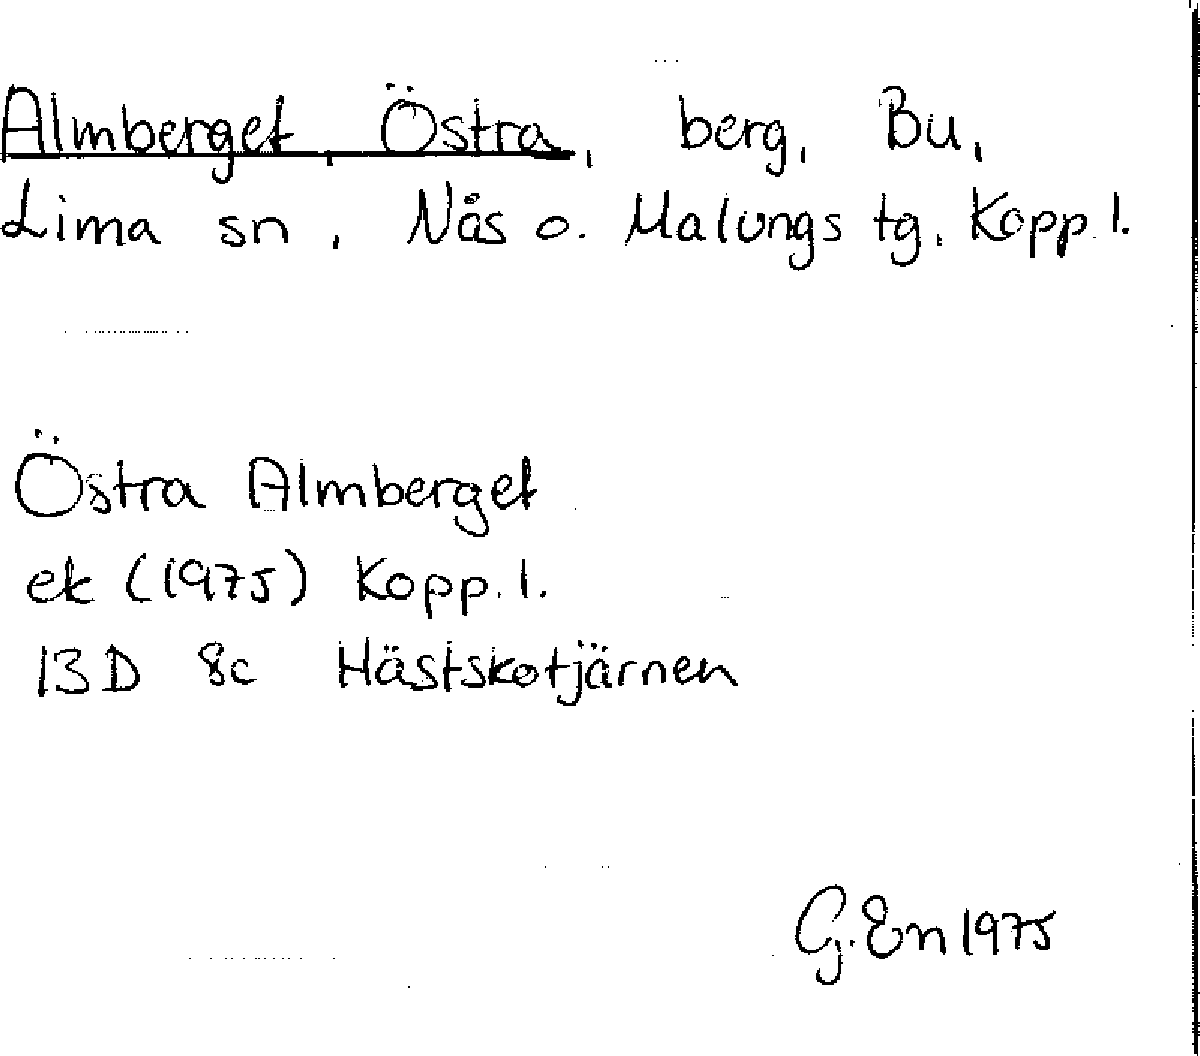 Almberget, Östra, berg, Bu,
Lima sn, Nås o. Malungs tg, Kopp. l.
Östra Almberget
ek (1975) Kopp. l.
13D 8c Hästskotjärnen
G. En 1975